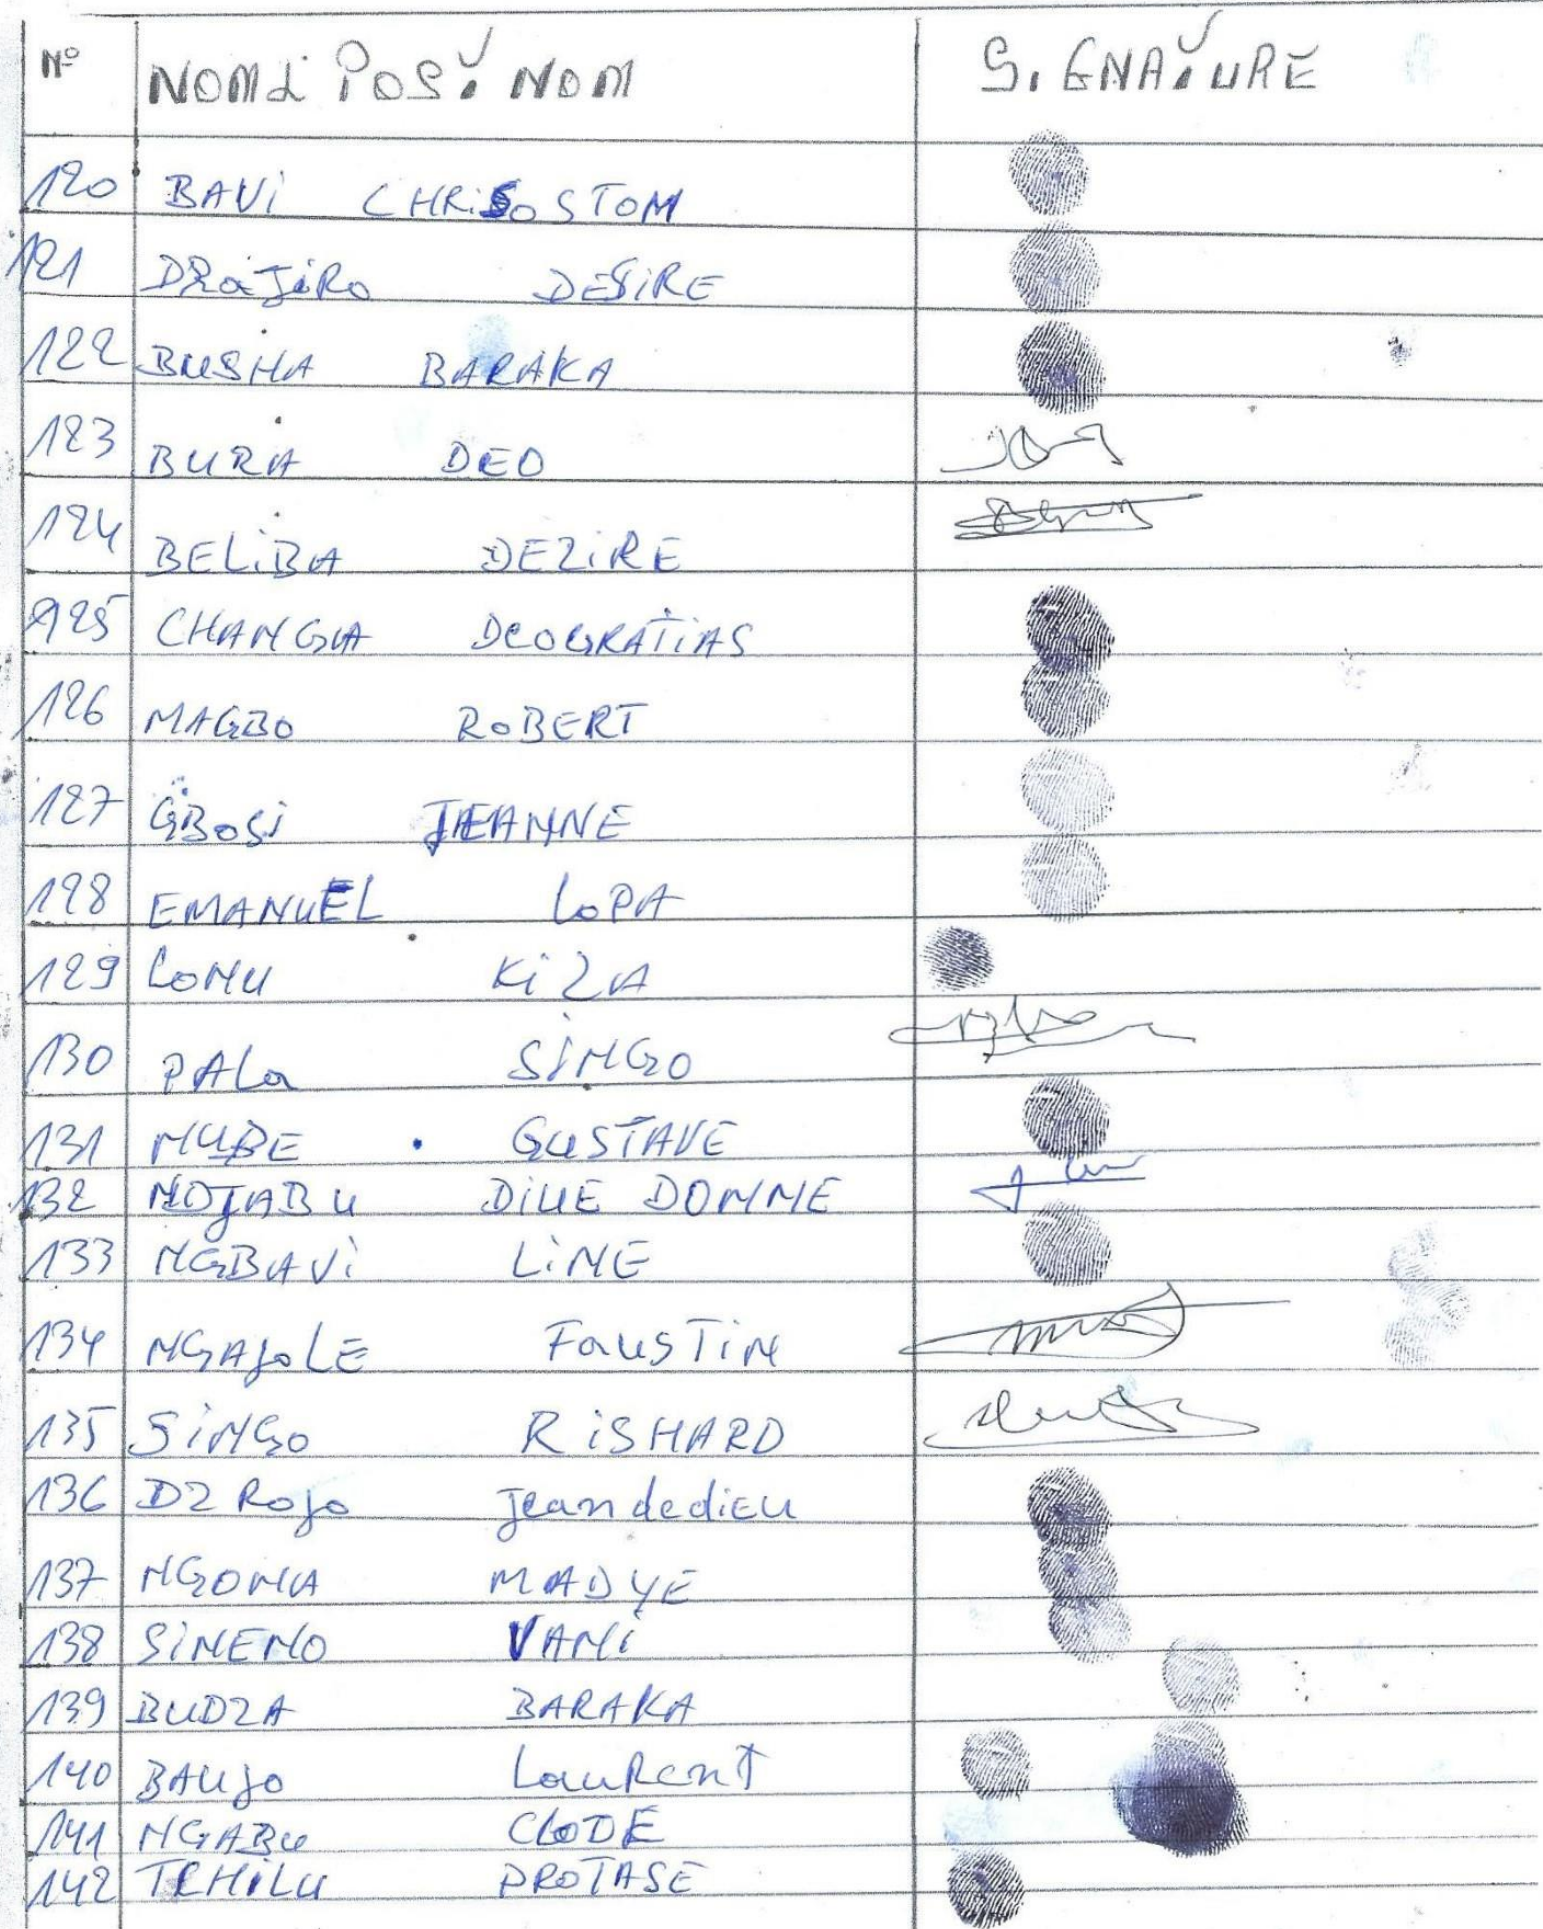 N° NOM & POST NOM SIGNATURE
120 BAVI CHRISOSTOM
121 DZAJIRO DESIRE
122 BUSHA BARAKA
123 BURA DEO
124 BELIBA DEZIRE
125 CHANGA DEOGRATIAS
126 MAGBO ROBERT
127 GBOSI JEANNE
128 EMANUEL LOPA
129 LOMU KIZA
130 PALA SINGO
131 NUBE GUSTAVE
132 NDJABU DIUE DONNE
133 NGBAVI LINE
134 NGAJOLE FAUSTIN
135 SINGO RISHARD
136 DZ ROJO Jeandedieu
137 NGONA MADYE
138 SINENO VANI
139 BUDZA BARAKA
140 BAUJO LAURENT
141 NGABU CLODE
142 PROTASE